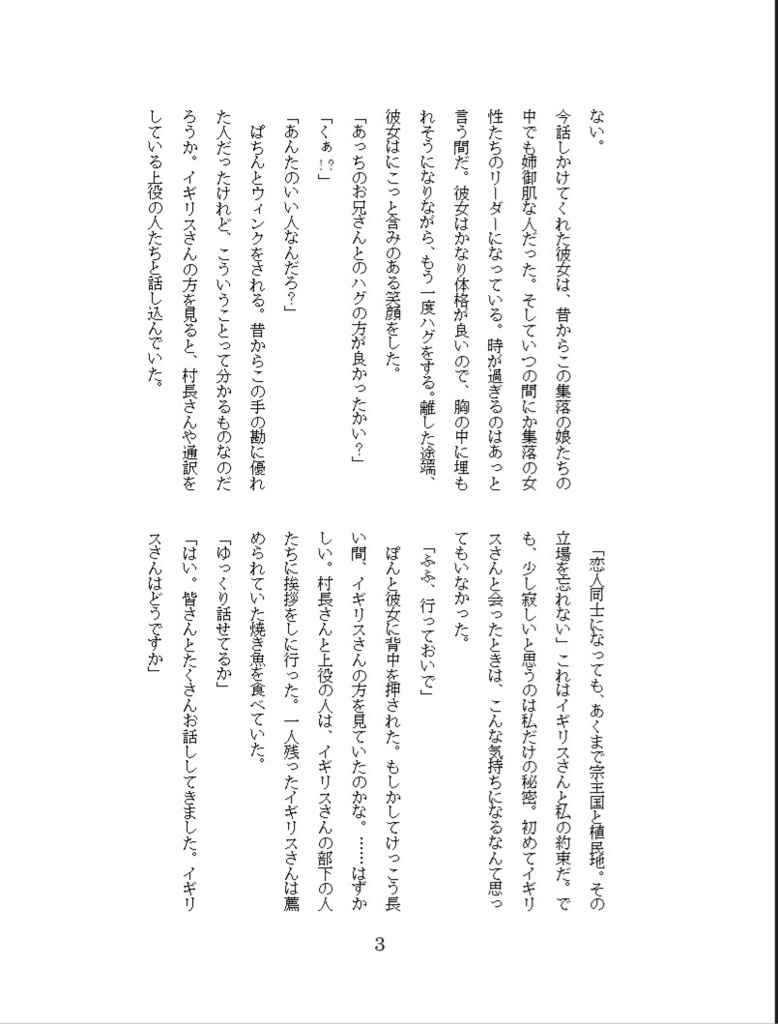 ない。
今話しかけてくれた彼女は、昔からこの集落の娘たちの
中でも姉御肌な人だった。そしていつの間にか集落の女
性たちのリーダーになっている。時が過ぎるのはあっと
言う間だ。彼女はかなり体格が良いので、胸の中に埋も
れそうになりながら、もう一度ハグをする。離した途端、
彼女はにこっと含みのある笑顔をした。
「あっちのお兄さんとのハグの方が良かったかい？」
「くぁ!?」
「あんたのいい人なんだろ？」
ぱちんとウィンクをされる。昔からこの手の勘に優れ
た人だったけれど、こういうことって分かるものなのだ
ろうか。イギリスさんの方を見ると、村長さんや通訳を
している上役の人たちと話し込んでいた。
「恋人同士になっても、あくまで宗主国と植民地。その
立場を忘れない」これはイギリスさんと私の約束だ。で
も、少し寂しいと思うのは私だけの秘密。初めてイギリ
スさんと会ったときは、こんな気持ちになるなんて思っ
てもいなかった。
「ふふ、行っておいで」
ぽんと彼女に背中を押された。もしかしてけっこう長
い間、イギリスさんの方を見ていたのかな。……はずか
しい。村長さんと上役の人は、イギリスさんの部下の人
たちに挨拶をしに行った。一人残ったイギリスさんは薦
められていた焼き魚を食べていた。
「ゆっくり話せてるか」
「はい。皆さんとたくさんお話ししてきました。イギリ
スさんはどうですか」
3